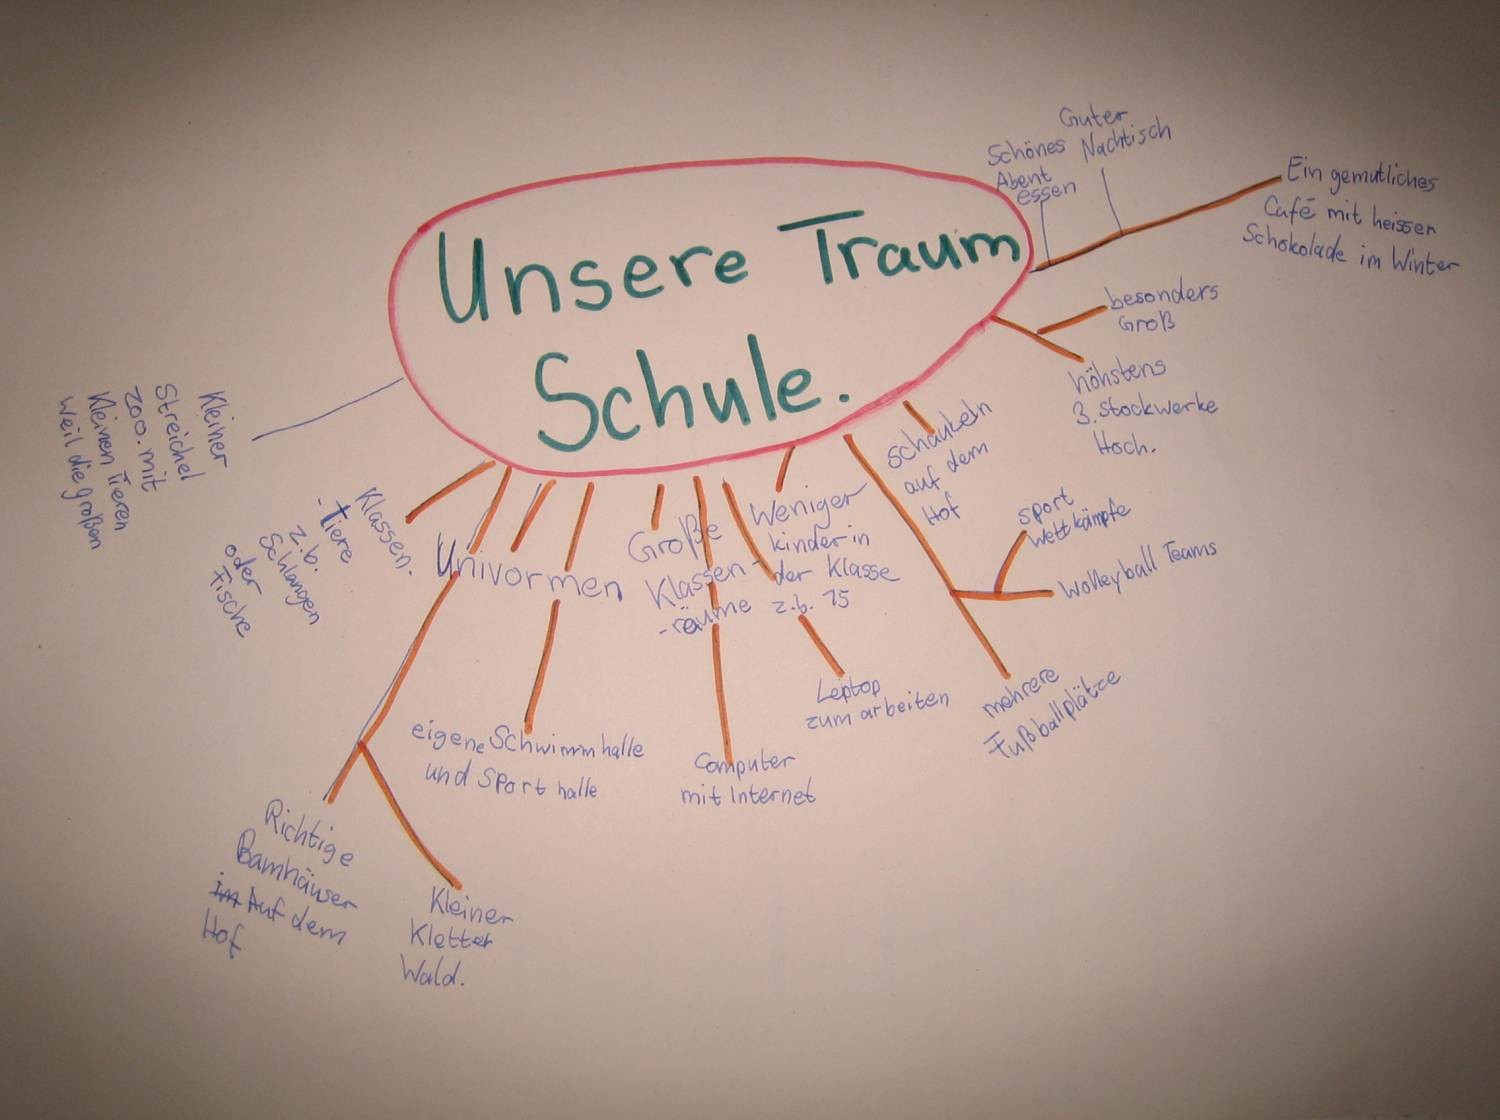 Unsere Traum
Schule.
Schönes
Abent
essen
Guter
Nachtisch
Ein gemutliches
Café mit heisser
Schokolade im Winter
besonders
Groß
höhstens
3. Stockwerke
Hoch.
schaukeln
auf dem
Hof
sport
Wettkämpfe
Wolleyball Teams
mehrere
Fußballplätze
Weniger
kinder in
der Klasse
z.b. 15
Leptop
zum arbeiten
Große
Klassen-
-räume
Computer
mit Internet
Univormen
eigene Schwimmhalle
und Sport halle
Richtige
Bamhäuser
im Auf dem
Hof
Kleiner
Kletter
Wald.
Klassen.
-tiere
z.b.
Schlangen
oder
Fische
Kleiner
Streichel
zoo. mit
Kleinen Tieren
weil die großen